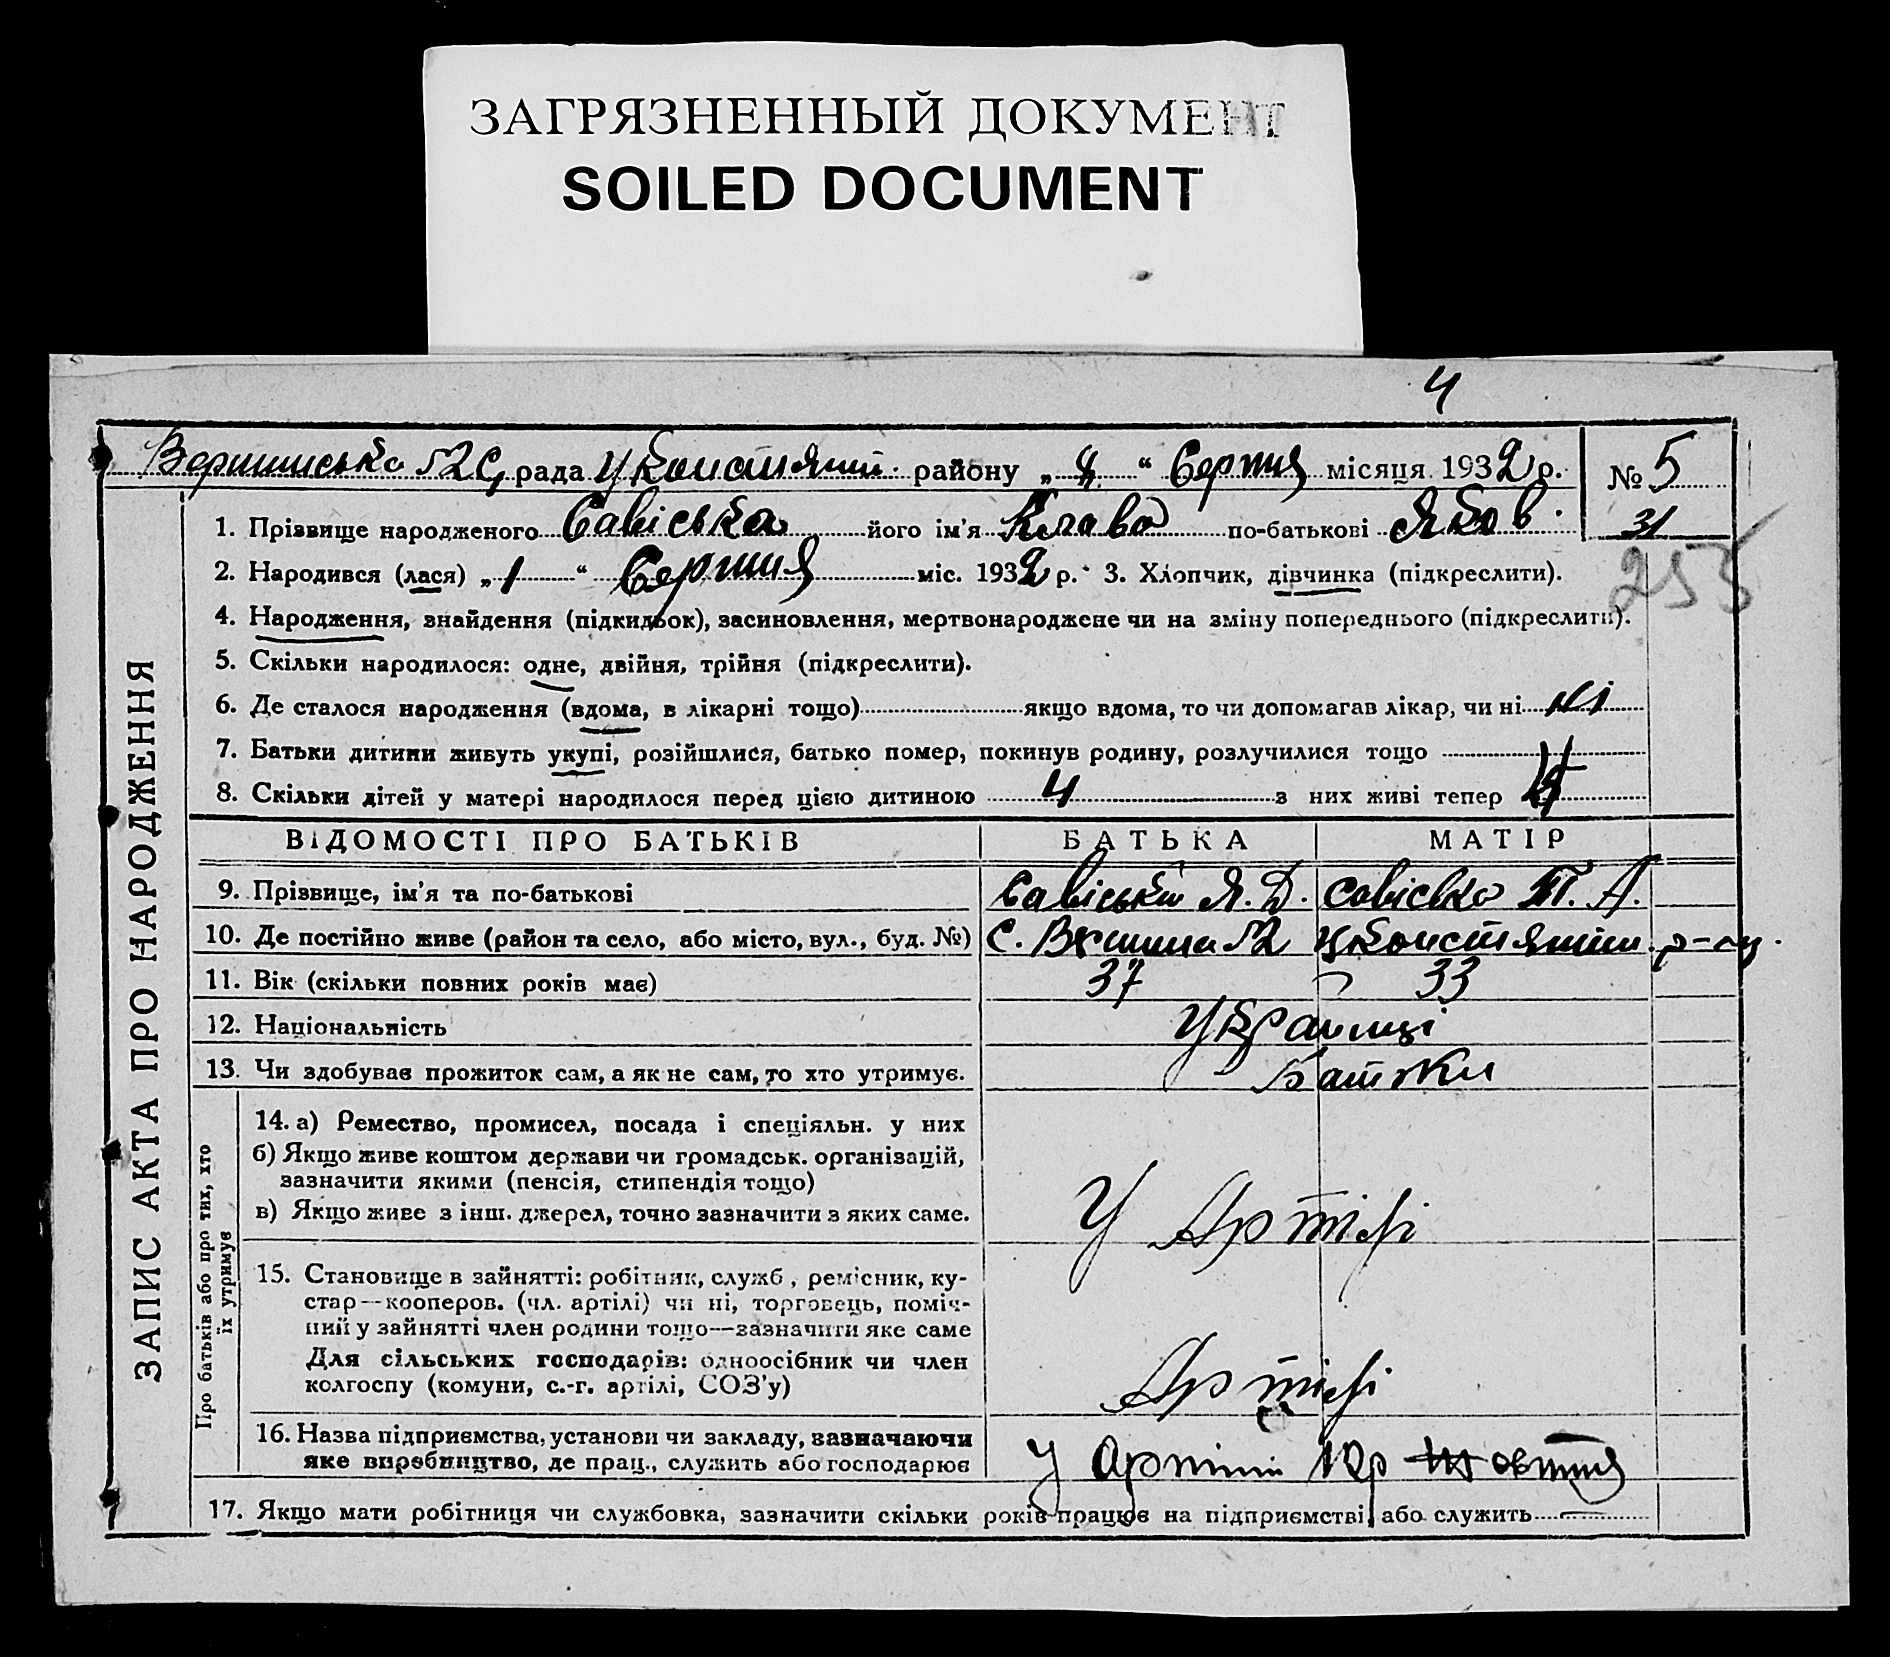 ЗАГРЯЗНЕННЫЙ ДОКУМЕНТ
SOILED DOCUMENT
4
рада району „ “ Серпня місяця 1932 р. № 5
31
1. Прізвище народженого Савіська його ім'я Клава по-батькові Яков.
255
2. Народився (лася) „1“ Серпня міс. 1932 р. 3. Хлопчик, дівчинка (підкреслити).
4. Народження, знайдення (підкидьок), засиновлення, мертвонароджене чи на зміну попереднього (підкреслити).
5. Скільки народилося: одне, двійня, трійня (підкреслити).
6. Де сталося народження (вдома, в лікарні тощо) якщо вдома, то чи допомагав лікар, чи ні ні
7. Батьки дитини живуть укупі, розійшлися, батько помер, покинув родину, розлучилися тощо
8. Скільки дітей у матері народилося перед цією дитиною 4 з них живі тепер
ВІДОМОСТІ ПРО БАТЬКІВ БАТЬКА МАТІР
9. Прізвище, ім'я та по-батькові Савіський Я. Д. Савіська Т. А.
10. Де постійно живе (район та село, або місто, вул., буд. №) с. р-ну.
11. Вік (скільки повних років має) 37 33
12. Національність Українці
13. Чи здобував прожиток сам, а як не сам, то хто утримує. Батьки
14. а) Ремество, промисел, посада і спеціяльн. у них
б) Якщо живе коштом держави чи громадськ. організацій,
зазначити якими (пенсія, стипендія тощо)
в) Якщо живе з інш. джерел, точно зазначити з яких саме.
У Артілі
15. Становище в зайнятті: робітник, служб, ремісник, ку-
стар—кооперов. (чл. артілі) чи ні, торговець, поміч-
ний у зайнятті член родини тощо—зазначити яке саме
Для сільських господарів: одноосібник чи член
колгоспу (комуни, с.-г. артілі, СОЗ'у)
Артілі
16. Назва підприємства, установи чи закладу, зазначаючи
яке виробництво, де прац., служить або господарює
У Артілі Кр Жовтня
17. Якщо мати робітниця чи службовка, зазначити скільки років працює на підприємстві або служить —
ЗАПИС АКТА ПРО НАРОДЖЕННЯ
Про батьків або про тих, хто
їх утримує